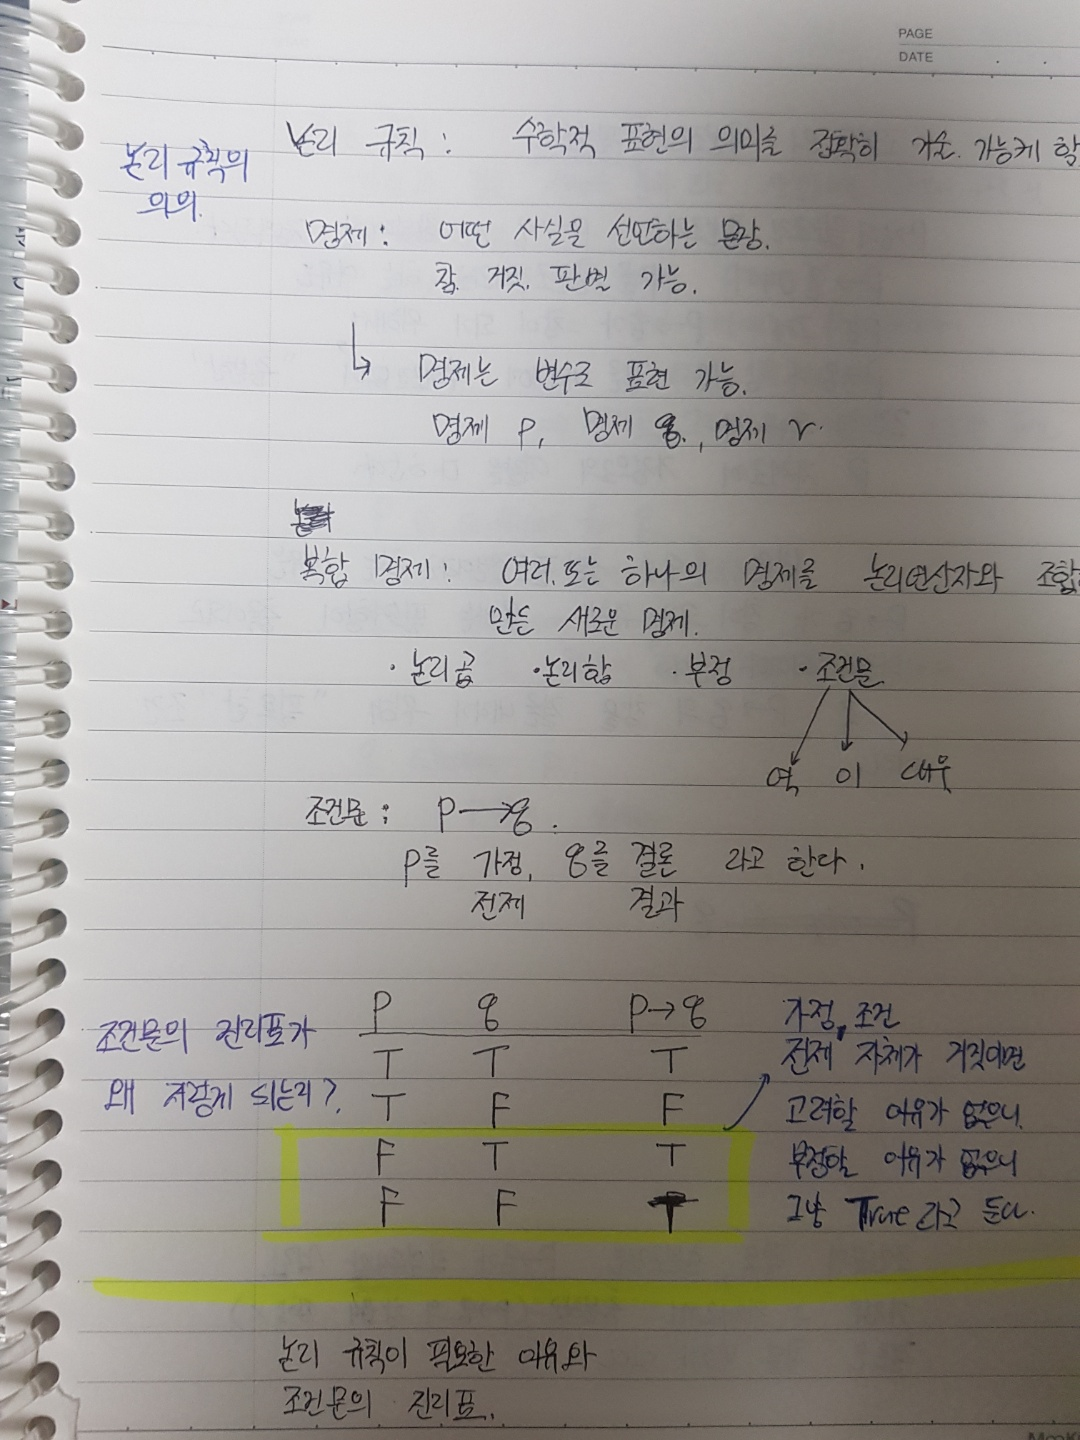 PAGE
DATE
논리 규칙의
의의.
논리 규칙 : 수학적 표현의 의미를 정확히 기술. 가능케 함
명제 : 어떤 사실을 선언하는 문장.
참. 거짓. 판별 가능.
↳ 명제는 변수로 표현 가능.
명제 p, 명제 q., 명제 r.
복합 명제 : 여러. 또는 하나의 명제를 논리연산자와 조합
만든 새로운 명제.
· 논리곱 · 논리합 · 부정 · 조건문
역 이 대우
조건문 ; p → q .
p를 가정, q를 결론 라고 한다.
전제 결과
조건문의 진리표가
왜 저렇게 되는지?
p q p → q
T T T
T F F
F T T
F F T
가정, 조건
전제 자체가 거짓이면
고려할 이유가 없으니
부정할 이유가 없으니
그냥 True 라고 둔다.
논리 규칙이 필요한 이유와
조건문의 진리표.